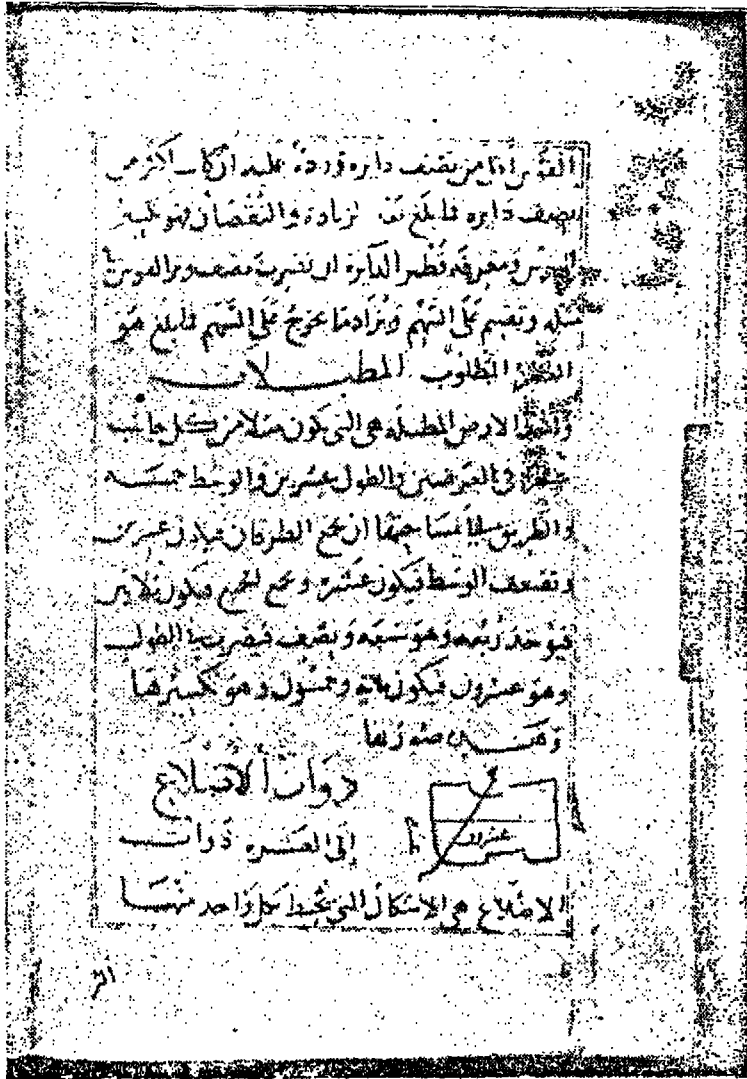 القوس اقل من نصف دايره وزده عليه ان كان اكثر من
نصف دايره فما بلغ بعد الزيادة والنقصان فهو تكسير
القوس ومعرفة قطر الدايرة ان تضرب نصف وتر القوس في
مثله وتقسم على السهم وتزاد ما يخرج على السهم فما بلغ هو
القطر المطلوب المطبلات
والارض المطبله هي التي تكون مثلا من كل جانب
في العرضين والطول عشرين والوسط خمسه
والطريق في مساحتها ان تجمع الطرفان
وتضعف الوسط فيكون عشره وتجمع الجميع فيكون ثلاثين
فيوخذ ربعه وهو سبعه ونصف فيضرب في الطول
وهو عشرون فيكون مائه وخمسون وهو تكسيرها
وهذه صورتها
ذوات الاضلاع
عشرون
الى العشره ذوات
الاضلاع هي الاشكال التي يحيط بكل واحد منها
اكثر